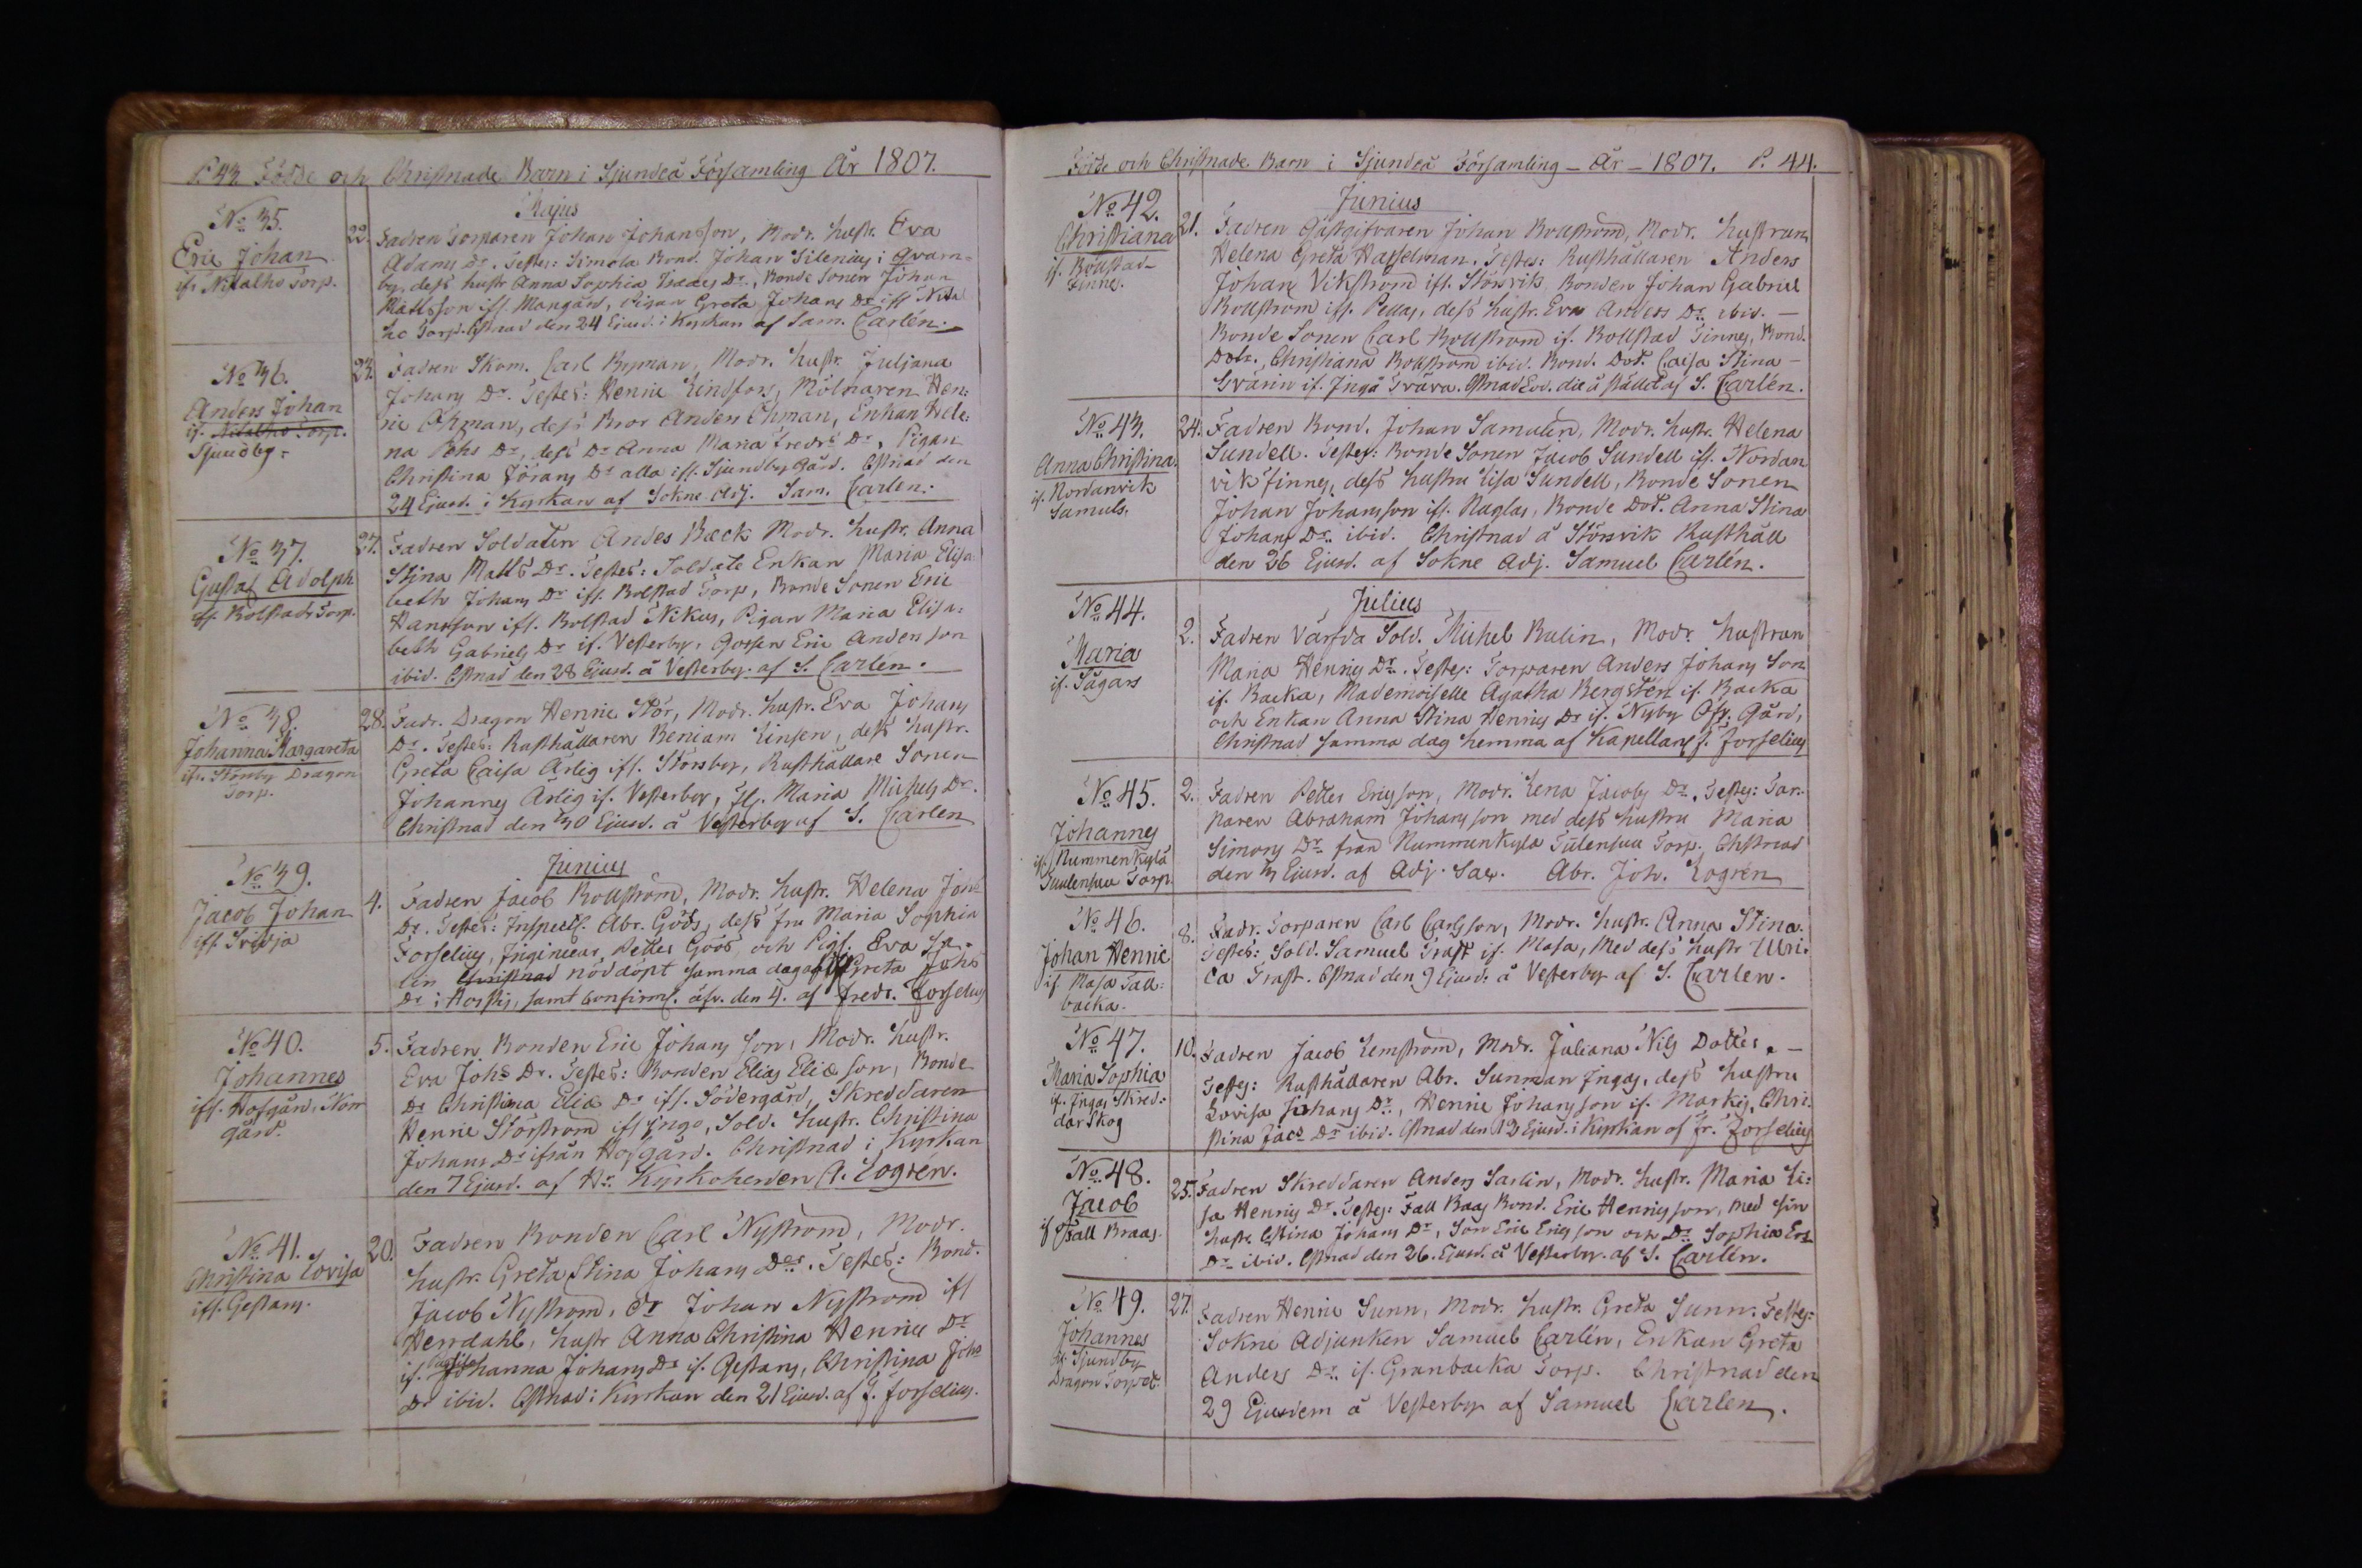 P. 43 Födde och Christnade Barn i Sjundeå Församling År 1807.
Majus
No 35.
Eric Johan
if. Nitalho Torp.
22. Fadren Torparen Johan Johansson, Modr. hustr. Eva
Adams Dr. Testes: Simola Bond. Johan Silenius i Qvarn-
by, dess hustr Anna Sophia Isaacs Dr, Bonde Sonen Johan
Mattsson ifs. Mangård, Pigan Greta Johans Dr ifs Nita
ho Torp. Chstnad den 24 Ejusd. i Kyrkan af Sam. Carlén.
No 36.
Anders Johan
if. Nitalho Torp.
Sjundby.
23. Fadren Skom. Carl Ryman, Modr. hustr. Juljana
Johans Dr. Testes: Henric Lindfors, Mölnaren Hen-
ric Öhman, dess Bror Anders Öhman, Enkan Hele-
na Dr, dess Dr Anna Maria Fredrs Dr, Pigan
Christina Jörans Dr alla ifs. Sjundby Gård. Chstnad den
24 Ejusd. i Kyrkan af Sokne Adj. Sam. Carlen.
No 37.
Gustaf Adolph
ifs. Bolstads Torp.
27. Fadren Soldaten Andes Bæck Modr. hustr. Anna
Stina Matts Dr. Testes: Soldate Enkan Maria Elisa
beth Johans Dr ifs. Bolstad Torp, Bonde Sonen Eric
Hansson ifs. Bolstad Nikus, Pigan Maria Elisa-
beth Gabriels Dr if. Vesterby, Gossen Eric Andersson
ibid. Chstnad den 28 Ejusd. å Vesterby. af S. Carlén.
No 38.
Johanna Margareta
ifr. Störsby Dragon
Torp.
28. Fadr. Dragon Henric Stör, Modr. hustr. Eva Johans
Dr. Testes: Rusthållaren Beniam Linsen, dess hustr.
Greta Caisa Ärlig ifs. Störsby, Rusthållare Sonen
Johannes Ärlig if. Vesterby, Maria Michels Dr.
Christnad den 30 Ejusd. å Vesterby af S. Carlen
Junius
No 39.
Jacob Johan
ifs. Svidja
4. Fadren Jacob Bollström, Modr. hustr. Helena Johs
Dr. Testes: Inspect. Abr. Göös, dess fru Maria Sophia
Forselius, Jngenieur Petter Göös och Pigs. Eva Sa-
lin Christnad nöddöpt samma dag af Greta Johs
Dr i samt Confirm. äfv. den 4. af Fredr. Forselius
No 40.
Johannes
ifs. Hofgård, Norr
gård.
5. Fadren Bonden Eric Johans son, Modr. hustr.
Eva Johs Dr. Testes: Bonden Elias Eliæ son, Bonde
Dr Christina Eliæ Dr ifs. Södergård, Skreddaren
Henric Störström ifs Jngo, Sold. hustr. Christina
Johans Dr ifrån Hofgård. Christnad i Kyrkan
den 7 Ejusd. af Hr. Kyrkoherden A. Logrén.
No 41.
Christina Lovisa
ifs. Gestans.
20. Fadren Bonden Carl Nyström, Modr.
hustr. Greta Stina Johans Dr. Testes: Bond.
Jacob Nyström, dr Johan Nyström ifs
Herrdahl, hustr Anna Christina Henrics Dr
if. Johanna Johans Dr if. Gestans, Christina Johs
Dr ibid. Chstnad i Kyrkan den 21 Ejusd. af F. Forselius.
Födde och Christnade Barn i Sjundeå Församling – År – 1807. P. 44.
Junius
No 42.
Christiana
if. Bollstad
Finne.
21. Fadren Gästgifvaren Johan Bollström, Modr. hustrun
Helena Greta Hasselman. Testes: Rusthållaren Anders
Johan Vikström ifs. Störsvik, Bonden Johan Gabriel
Bollström ifs. Pellas, dess hustr. Eva Anders Dr. ibid. –
Bonde Sonen Carl Bollström if. Bollstad Finnes, Bond.
Dott. Christiana Bollström ibid. Bond. Dot. Caisa Stina –
Gränn if. Jngå Chstnad Eod. die å stället af S. Carlén.
No 43.
Anna Christina
if. Nordanvik
Samuls.
24. Fadren Bond. Johan Samulin, Modr. hustr. Helena
Sundell. Testes: Bonde Sonen Jacob Sundell ifs. Nordan
vik finnes, dess hustru Lisa Sundell, Bonde Sonen
Johan Johansson ifs. Naglas, Bonde Dot. Anna Stina
Johans Dr. ibid. Christnad å Störsvik Rusthåll
den 26 Ejusd. af Sokne Adj. Samuel Carlén.
Julius
No 44.
Maria
if. Sågars
2. Fadren Värfda Sold. Michel Bulin, Modr. hustrun
Maria Henrics Dr. Testes: Torparen Anders Johans Son
if. Backa, Mademoiselle Agatha Bergstén if. Backa
och Enkan Anna Stina Henrics Dr if. Nyby Gård,
Christnad samma dag hemma af Kapellans F. Forselius
No 45.
Johannes
ifs. Nummenkylä
Tuulensuu Torp.
2. Fadren Petter Ericsson, Modr. Lena Jacobs Dr. Testes: Tor-
paren Abraham Johansson med dess hustru Maria
Simons Dr. från Nummenkylä Tulensuu Torp. Chstnad
den 3 Ejusd. af Adj. Sacr. Abr. Joh. Logrén
No 46.
Johan Henric
if. Masa Tall-
backa.
8. Fadr. Torparen Carl Carlsson, Modr. hustr. Anna Stina.
Testes: Sold. Samuel Trast if. Masa, Med dess hustr Ulri-
ca Trast. Chstnad den 9 Ejusd. å Vesterby af S. Carlen.
No 47.
Maria Sophia
if. Jngas Skred-
dar Skog
10. Fadren Jacob Lemström, Modr. Juliana Nils Dotter. –
Testes: Rusthållaren Abr. Sunman Jngas, dess hustru
Lovisa Johans Dr., Henric Johansson if. Markis, Chri-
stina Jacs Dr ibid. Chstnad den 12 Ejusd. i Kyrkan af Fr. Forselius
No 48.
Jacob
if Fall Braas.
25. Fadren Skreddaren Anders Sarlin, Modr. hustr. Maria Li-
sa Henrics Dr. Testes: Fall Baas Bond. Eric Henricsson, med sin
hustr. Chstina Johans Dr, Son Eric Ericsson och Dr. Sophia Ers
Dr ibid. Chstnad den 26. Ejusd. å Vesterby. af S. Carlén.
No 49.
Johannes
if. Sjundby
Dragon Torpet.
27. Fadren Henric Sunn, Modr. hustr. Greta Sunn. Testes:
Sokne Adjunken Samuel Carlén, Enkan Greta
Anders Dr. if. Granbacka Torp. Christnad den
29 Ejusdem å Vesterby af Samuel Carlen.